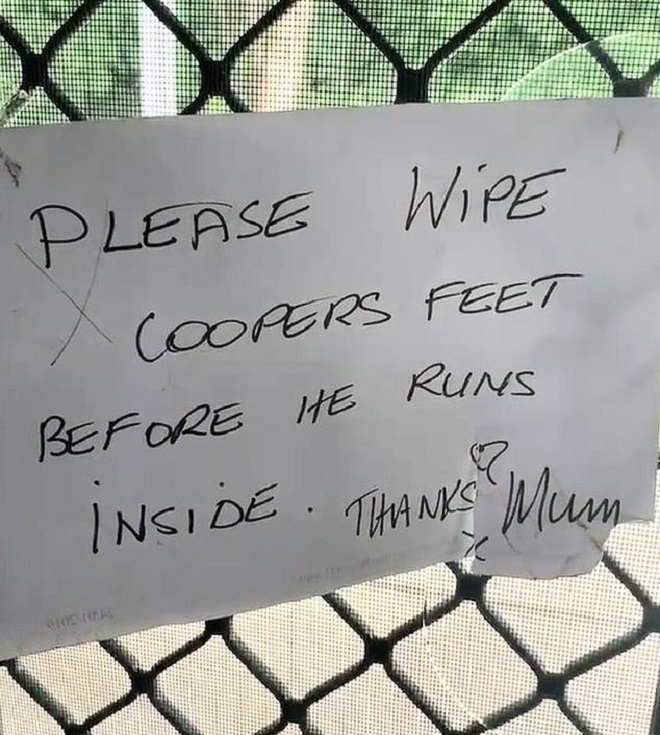 PLEASE WIPE
COOPERS FEET
BEFORE HE RUNS
INSIDE. THANKS Mum
x